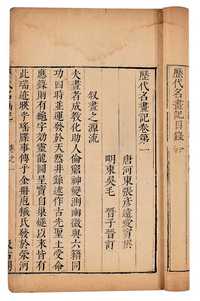 歷代名畫記目錄
歷代名畫記卷第一
唐河東張彥遠愛賓撰
明東吳毛晉子晉訂
叙畫之源流
夫畫者成教化助人倫窮神變測幽微與六籍同
功四時並運發於天然非繇述作古先聖王受命
應籙則有龜字効靈龍圖呈寶自巢燧以來皆有
此瑞迹暎乎瑤牒事傳乎金冊庖犧氏發於滎河